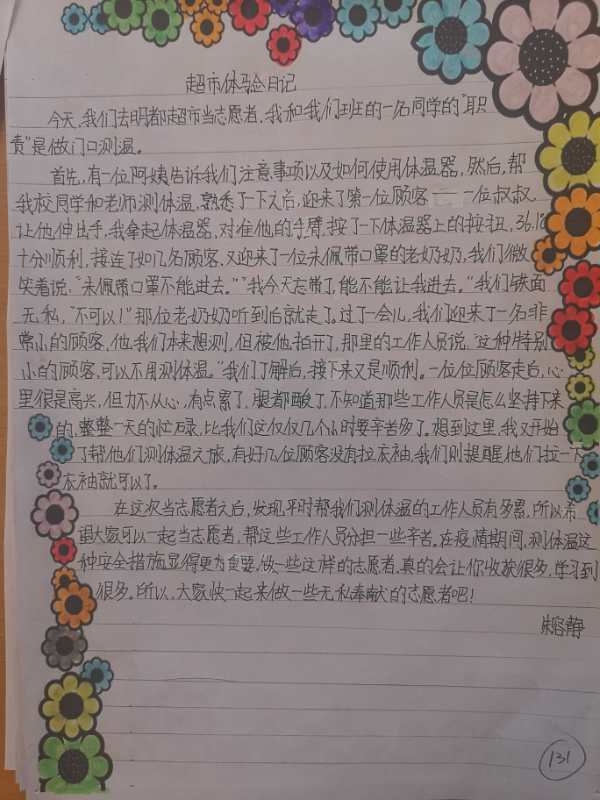 超市体验日记
今天,我们去明都超市当志愿者,我和我们班的一名同学的"职
责"是做门口测温。
首先,有一位阿姨告诉我们注意事项以及如何使用体温器,然后,帮
我校同学和老师测体温,熟悉了一下之后,迎来了第一位顾客——一位叔叔,
让他伸出手,我拿起体温器,对住他的手臂,按了一下体温器上的按扭,36,1℃
十分顺利,接连了好几名顾客,又迎来了一位未佩带口罩的老奶奶,我们微
笑着说,"未佩带口罩不能进去。""我今天忘带了,能不能让我进去。"我们铁面
无私,"不可以!"那位老奶奶听到后就走了。过了一会儿,我们迎来了一名非
常小的顾客,他,我们本来想测,但被他拍开了,那里的工作人员说,"这种特别
小的顾客,可以不用测体温。"我们了解后,接下来又是顺利。一位位顾客走后,心
里很是高兴,但力不从心,有点累了,腿都酸了,不知道那些工作人员是怎么坚持下来
的,整整一天的忙碌,比我们这仅仅几个小时要辛苦多了。想到这里,我又开始
了帮他们测体温之旅,有好几位顾客没有拉衣袖,我们则提醒他们拉一下
衣袖就可以了。
在这次当志愿者之后,发现平时帮我们测体温的工作人员有多累,所以希
望大家可以一起当志愿者,帮这些工作人员分担一些辛苦,在疫情期间,测体温这
种安全措施显得更为重要,做一些这样的志愿者,真的会让你收获很多,学习到
很多。所以,大家快一起来做一些无私奉献的志愿者吧!
朱容静
131